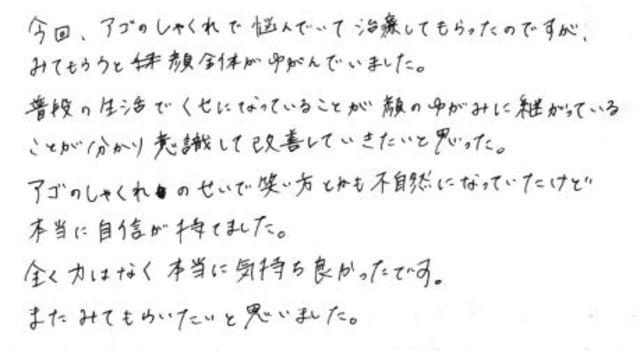 今回、アゴのしゃくれで悩んでいて治療してもらったのですが、
みてもらうと顔全体がゆがんでいました。
普段の生活でくせになっていることが顔のゆがみに継がっている
ことが分かり意識して改善していきたいと思った。
アゴのしゃくれのせいで笑い方とかも不自然になっていたけど
本当に自信が持てました。
全く力はなく本当に気持ち良かったです。
またみてもらいたいと思いました。